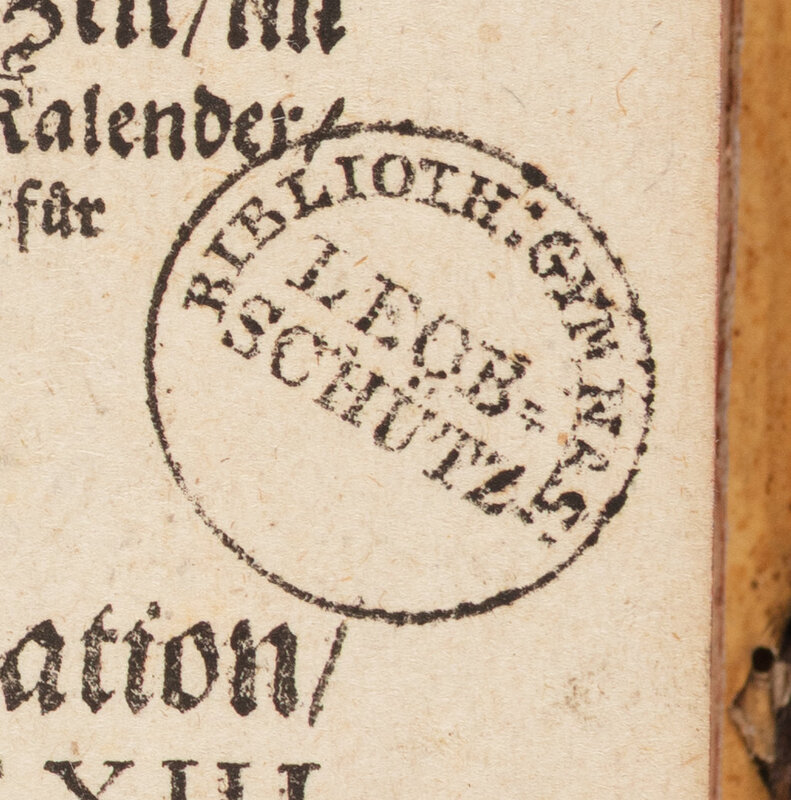 Kalender/
für
BIBLIOTH: GYMNAS:
LEOB=
SCHÜTZ.
ation/
XIII